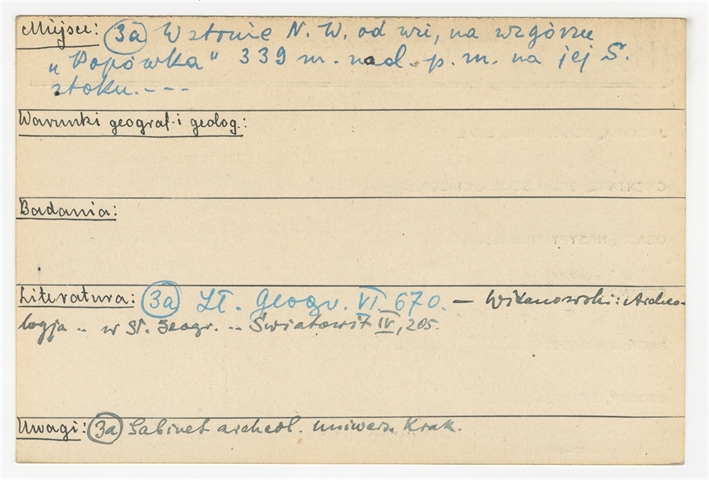 Miejsce: 3a W stonie N. W. od wsi, na wzgórzu
„Popówka" 339 m. nad. p. m. na jej S.
stoku. - - -
Warunki geograf. i geolog.:
Badania:
Literatura: 3a Sł. Geogr. VI 670. — Witanowski: Archeo-
logja .. w Sł. Geogr. .. Światowit IV, 205.
Uwagi: 3a Gabinet archeol. uniwers. Krak.